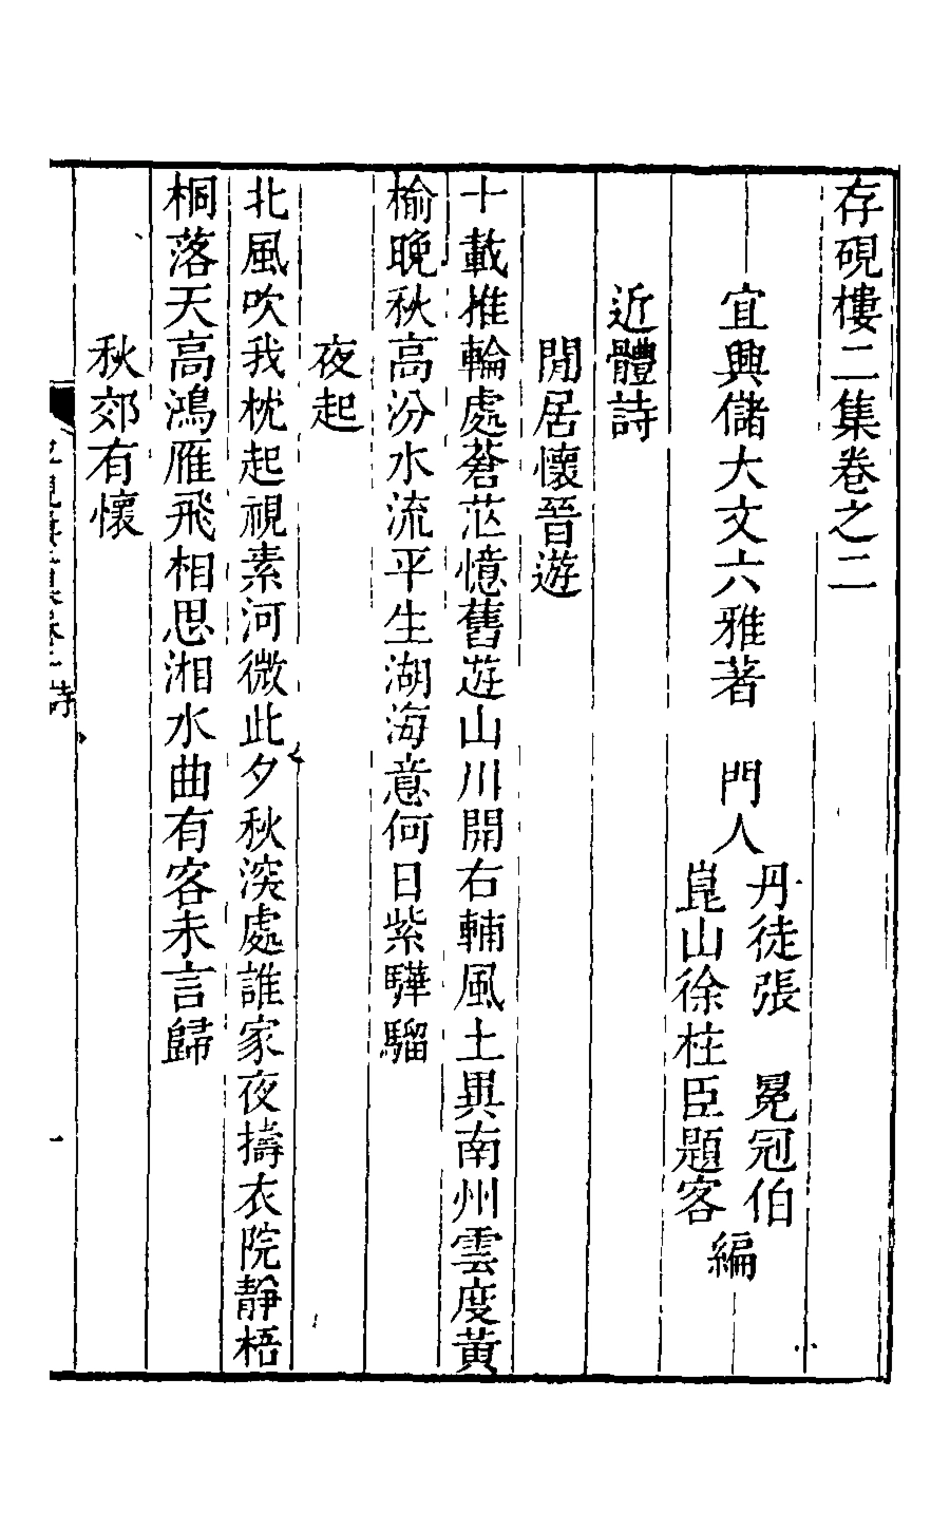 存硯樓二集卷之二
宜興儲大文六雅著　門人
丹徒張　冕冠伯
崑山徐柱臣題客
編
近體詩
閒居懷晉遊
十載推輪處蒼茫憶舊遊山川開右輔風土異南州雲度黃
榆晚秋高汾水流平生湖海意何日紫驊騮
夜起
北風吹我枕起視素河微此夕秋深處誰家夜擣衣院靜梧
桐落天高鴻雁飛相思湘水曲有客未言歸
秋郊有懷
詩
一